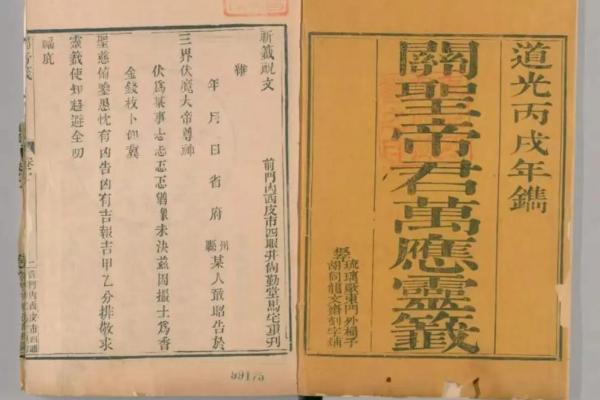 道光丙戌年鐫
關聖帝君萬應靈籤
琉璃廠東門外桶子
胡同龍文齋刻字鋪
祈籤祝文
前門內西皮市四眼井尚勤堂馬宅重刊
維
年 月 日省 府 州縣 某人敢昭告於
三界伏魔大帝尊神
伏爲某事忐忐忑忑猶豫未決茲因撮土爲香
金錢枚卜仰冀
聖慈俯鑒愚忱有凶告凶有吉報吉甲乙分排敬求
靈籤使知趨避全叨
福庇
99175